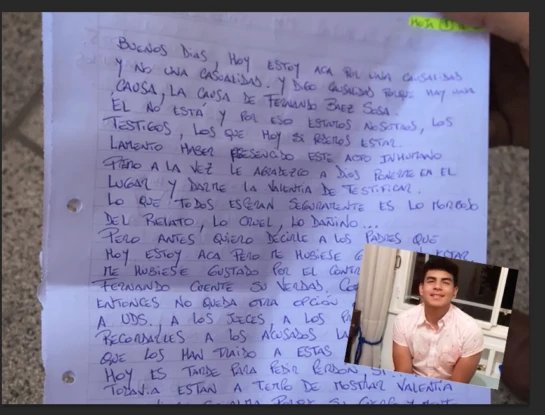 HOJA (1)
BUENOS DIAS, HOY ESTOY ACA POR UNA CAUSALIDAD
Y NO UNA CASUALIDAD. Y DIGO CAUSALIDAD PORQUE HAY UNA
CAUSA, LA CAUSA DE FERNANDO BAEZ SOSA.
EL NO ESTÁ Y POR ESO ESTAMOS NOSOTROS, LOS
TESTIGOS, LOS QUE HOY SI PODEMOS ESTAR.
LAMENTO HABER PRESENCIADO ESTE ACTO INHUMANO
PERO A LA VEZ LE AGRADEZCO A DIOS PONERME EN EL
LUGAR Y DARME LA VALENTIA DE TESTIFICAR.
LO QUE TODOS ESPERAN SEGURAMENTE ES LO MORBOSO
DEL RELATO, LO CRUEL, LO DAÑINO...
PERO ANTES QUIERO DECIRLE A LOS PADRES QUE
HOY ESTOY ACA PERO ME HUBIESE ESTAR
ME HUBIESE GUSTADO POR EL
FERNANDO CUENTE SU VERDAD.
ENTONCES NO QUEDA OTRA OPCIÓN
A UDS., A LOS JUECES A LOS
RECORDARLES A LOS ACUSADOS LA
QUE LOS HAN TRAIDO A ESTAS
HOY ES TARDE PARA PEDIR PERDON,
TODAVIA ESTAN A TIEMPO DE MOSTRAR VALENTIA